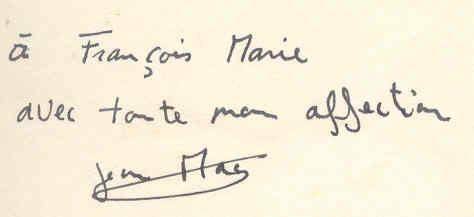 à François Marie
avec toute mon affection
Jean